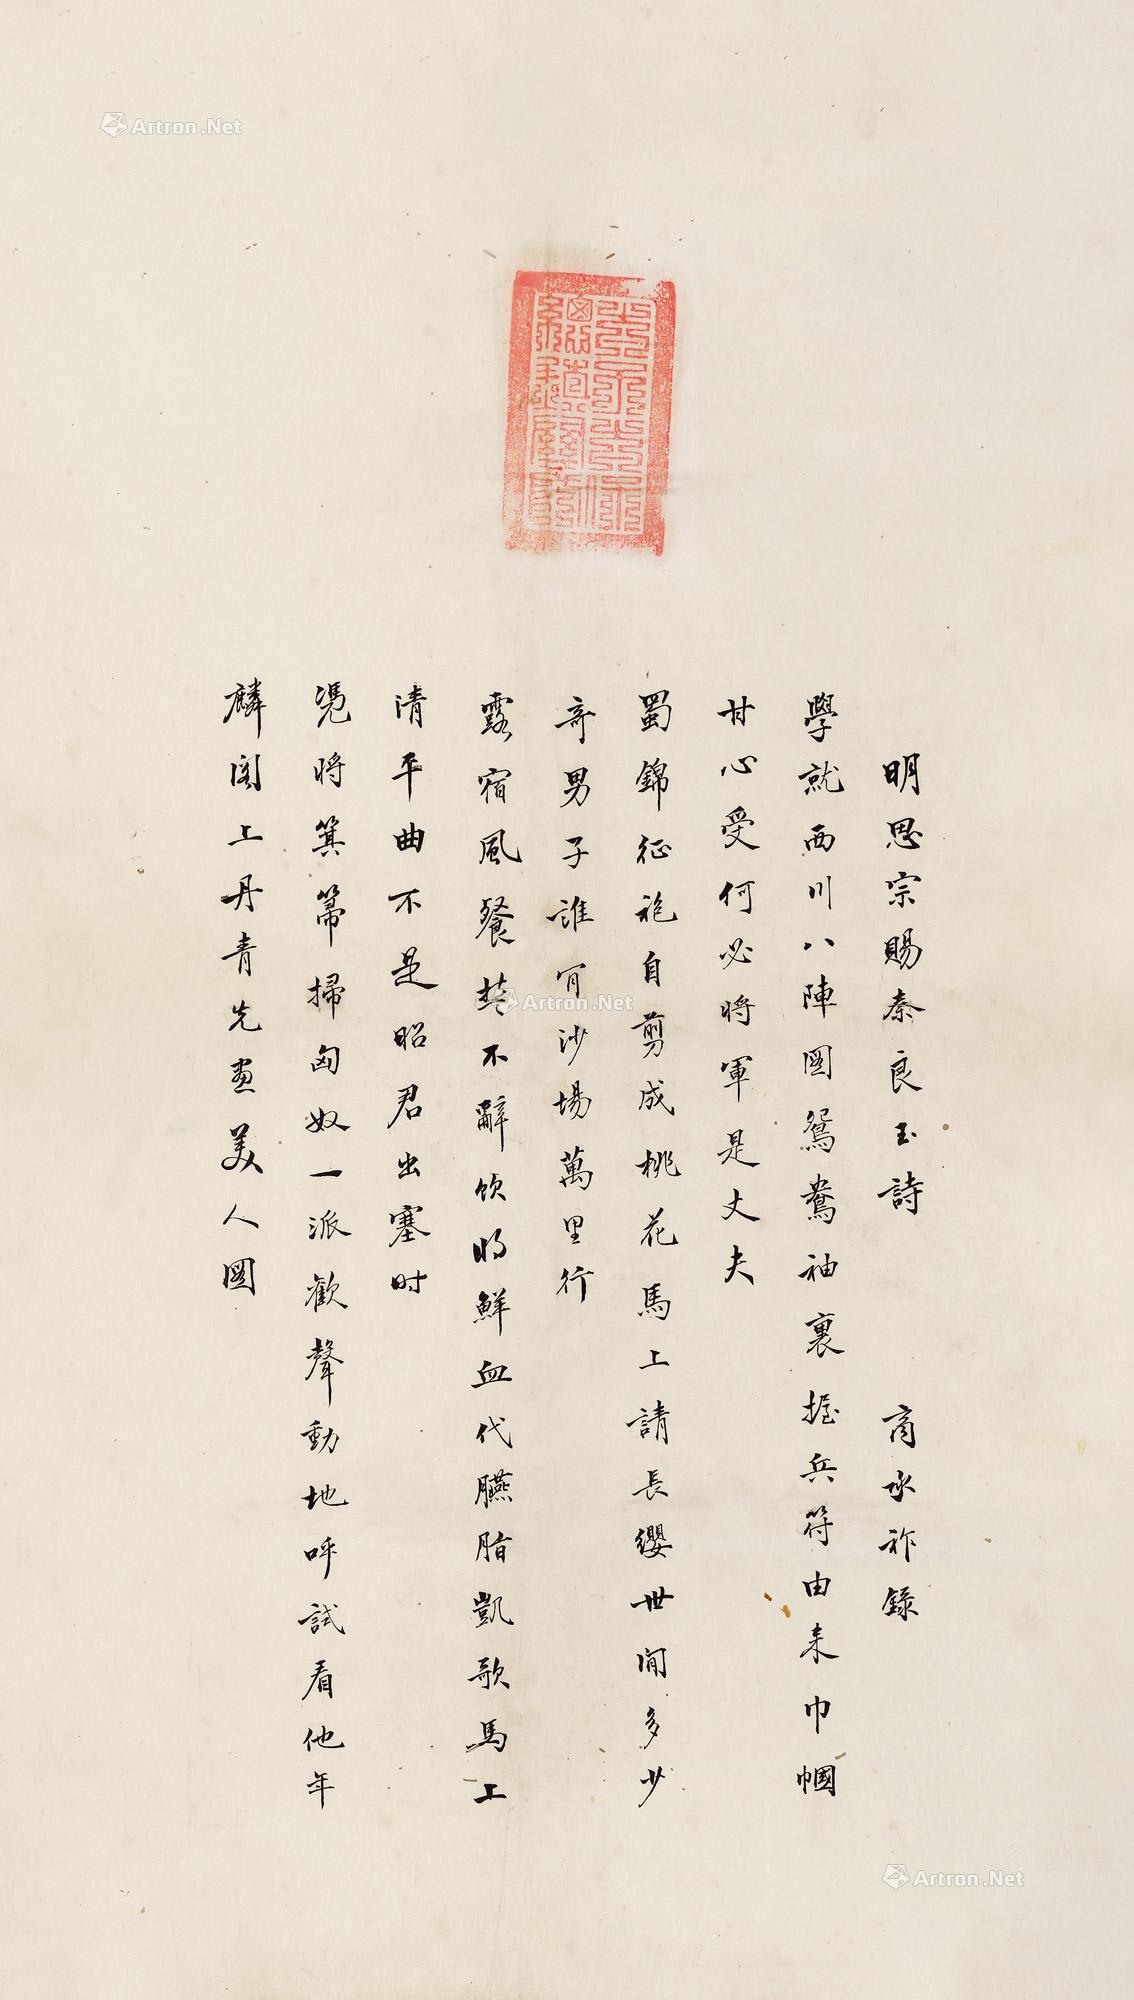 明思宗賜秦良玉詩 商承祚錄
學就西川八陣圖鴛鴦袖裏握兵符由来巾幗
甘心受何必將軍是丈夫
蜀錦征袍自剪成桃花馬上請長纓世間多少
奇男子誰肎沙場萬里行
露宿風餐誓不辭飲將鮮血代臙脂凱歌馬上
清平曲不是昭君出塞时
凭將箕帚掃匈奴一派歡聲動地呼試看他年
麟閣上丹青先畫美人圖
Artron.Net
Artron.Net
Artron.Net